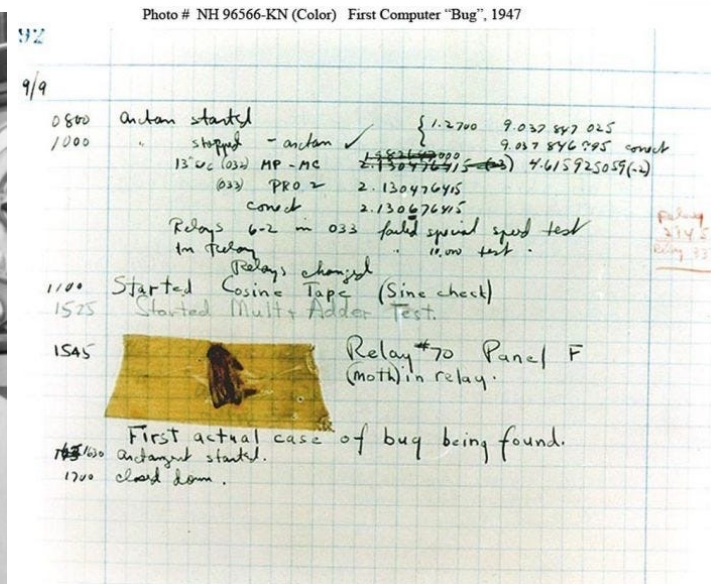 Photo # NH 96566-KN (Color) First Computer “Bug”, 1947
92
9/9
0800 antan started { 1.2700 9.037 847 025
1000 " stopped - antan ✓ 9.037 846 995 conect
13" uc (032) MP - MC 2.130476415 (-3) 4.615925059(-2)
(033) PRO 2 2.130476415
conect 2.130676415
Relays 6-2 in 033 failed special speed test
In Relay " 10.000 test .
Relays changed
1100 Started Cosine Tape (Sine check)
1525 Started Mult + Adder Test.
1545 Relay #70 Panel F
(moth) in relay.
First actual case of bug being found.
1630 antangent started.
1700 closed down .